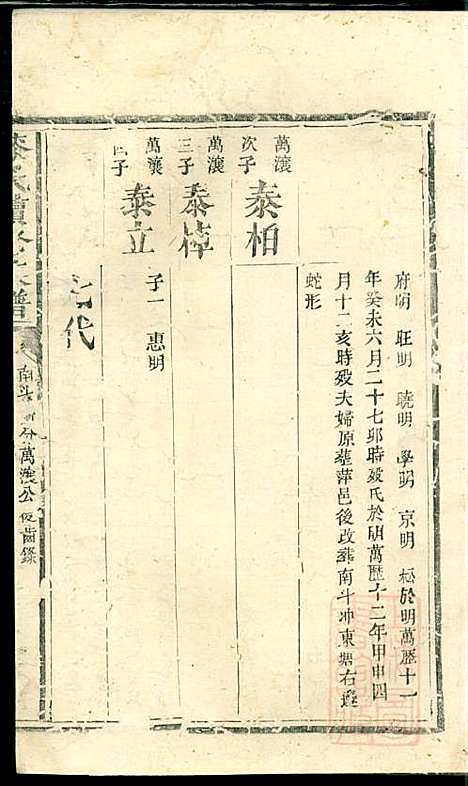 府明 旺明 曉明 學明 京明 松於明萬歷十一
年癸未六月二十七卯時歿氏於明萬歷十二年甲申四
月十二亥時歿夫婦原葬萍邑後改葬南斗冲東塘右邊
蛇形
萬瀼
次子
泰柏
萬瀼
三子
泰樟
萬瀼
四子
泰立
子一 惠明
九代
氏續修家譜
南斗 分萬瀼公 齒錄